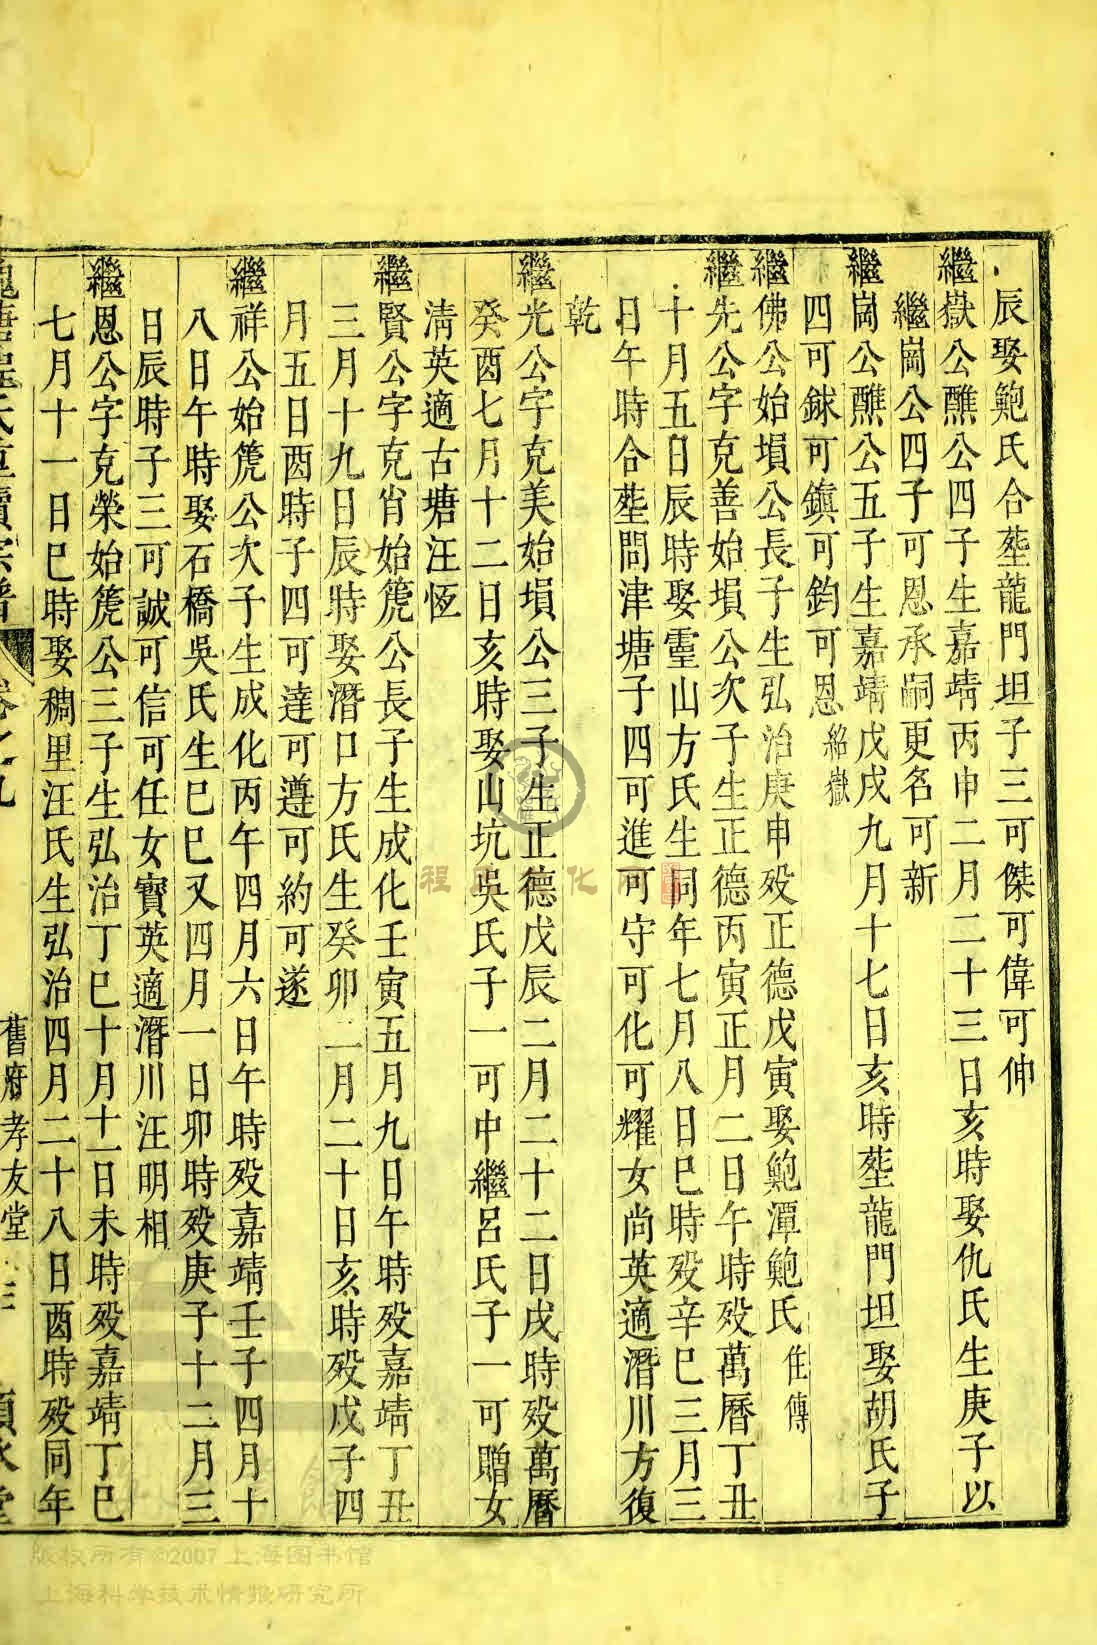 辰娶鮑氏合塟龍門坦子三可傑可偉可伸
繼嶽公醮公四子生嘉靖丙申二月二十三日亥時娶仇氏生庚子以
繼崗公四子可恩承嗣更名可新
繼崗公醮公五子生嘉靖戊戌九月十七日亥時塟龍門坦娶胡氏子
四可銶可鎮可鈞可恩紹嶽
繼佛公始塤公長子生弘治庚申歿正德戊寅娶鮑潭鮑氏隹傳
繼先公字克善始塤公次子生正德丙寅正月二日午時歿萬曆丁丑
十月五日辰時娶靈山方氏生同年七月八日巳時歿辛巳三月三
日午時合塟問津塘子四可進可守可化可耀女尚英適潛川方復
乾
繼光公字克美始塤公三子生正德戊辰二月二十二日戌時歿萬曆
癸酉七月十二日亥時娶山坑吳氏子一可中繼呂氏子一可贈女
清英適古塘汪恆
繼賢公字克肖始箎公長子生成化壬寅五月九日午時歿嘉靖丁丑
三月十九日辰時娶潛口方氏生癸卯二月二十日亥時歿戊子四
月五日酉時子四可達可遵可約可遂
繼祥公始箎公次子生成化丙午四月六日午時歿嘉靖壬子四月十
八日午時娶石橋吳氏生己巳又四月一日卯時歿庚子十二月三
日辰時子三可誠可信可任女寶英適潛川汪明相
繼恩公字克榮始箎公三子生弘治丁巳十月十一日未時歿嘉靖丁巳
七月十一日巳時娶稠里汪氏生弘治四月二十八日酉時歿同年
氏重續宗譜 卷之九 舊府孝友堂 三 順承堂
版权所有©2007上海图书馆
上海科学技术情报研究所